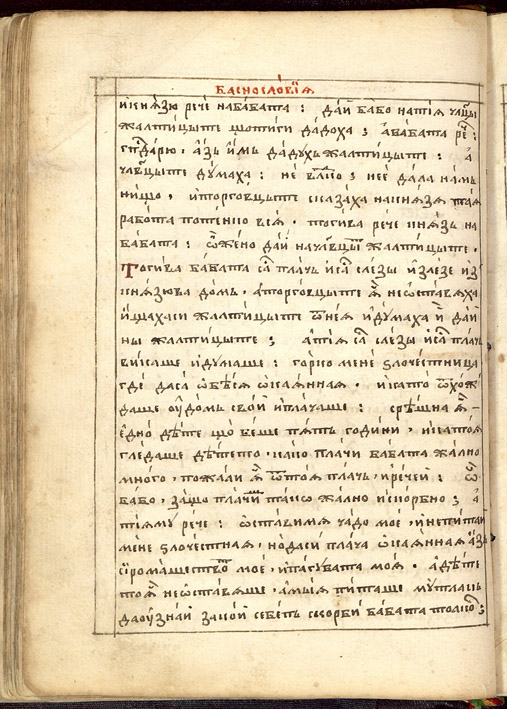 БАСНОСЛОВЇѦ
и҆ кнѧзю рече на бабата : дай бабо на тїѧ чл҃цы
жалтицыте що ти ги дадоха ; а бабата рече :
гп҃дарю , азь имь дадухь жалтицыте : а
чл҃цыте думаха : не бл҃го ; не е дала намь
нищо , и торговцыте сказаха на кнѧзѧ таѧ
работа потенкѡ всѧ . тогива рече кнѧзь на
бабата : ѡ҆ жено дай на чл҃вцы жалтицыте .
Тогива бабата са плачь и са слезы излезе из
кнѧзюва домь , а торговцыте ѧ не ѡставѧха
и щахаси жалтицыте ѿ неѧ и думаха й дай
ны жалтицыте ; а тїѧ са слезы и са плачь
викаше и думаше : горко мене ѕлочестница
где да са ѡбѣсѧ ѡкаѧнная . и като ѿхож
даше оу домь свой и плачаше : срѣшна ѧ
едно дѣте що беше петь години , и като ѧ
гледаше дѣтето , како плачи бабата жално
много , пожали ѧ ѿ тоѧ плачь , и рече й : ѡ
бабо , защо плачишь такѡ жално и скорбно ; а
тїѧ му рече : ѡстави мѧ чадо мое , и не питай
мене ѕлочестнаѧ , но да си плача ѡкаѧннаѧ азь
сїромашество мое , и пагубата моѧ . а дѣте
то ѧ не ѡставѧше , а мыѧ питаше мутлакь
да оузнай за кой себепь скорби бабата толкоз ;